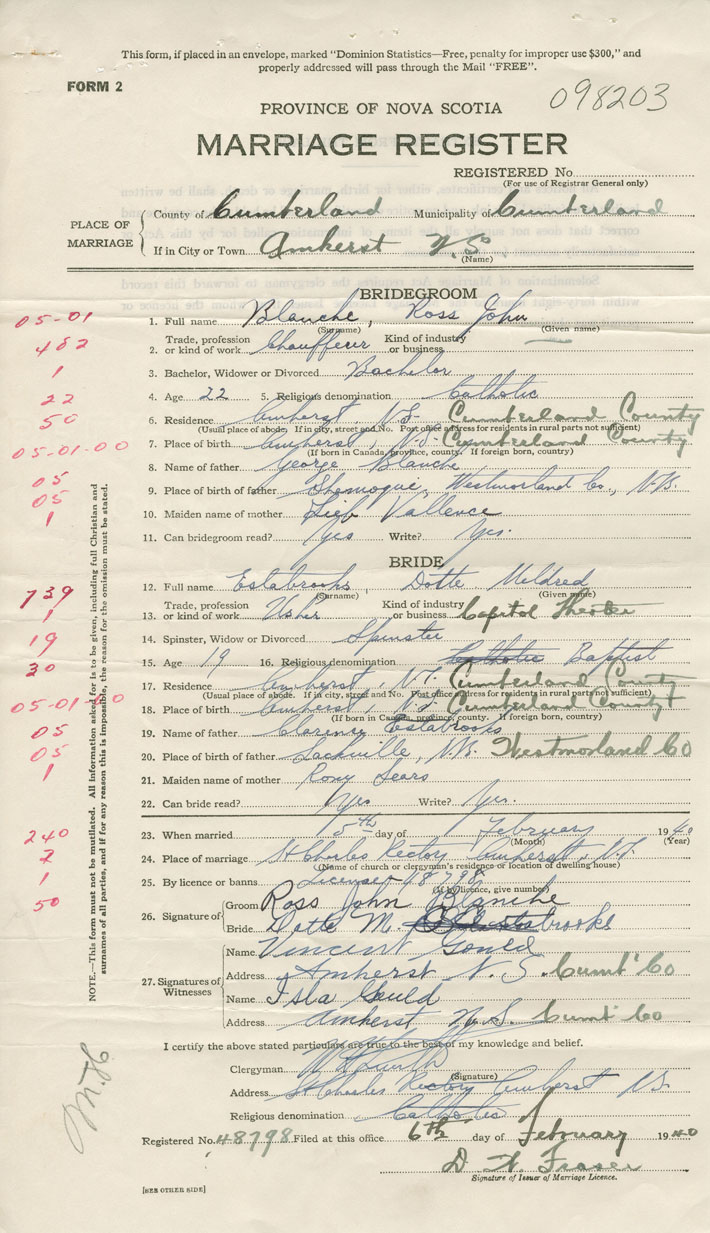 This form, if placed in an envelope, marked "Dominion Statistics—Free, penalty for improper use $300," and
properly addressed will pass through the Mail "FREE".
FORM 2
098203
PROVINCE OF NOVA SCOTIA
MARRIAGE REGISTER
REGISTERED No.
(For use of Registrar General only)
PLACE OF MARRIAGE
County of Cumberland Municipality of Cumberland
If in City or Town Amherst N.S.
(Name)
BRIDEGROOM
05-01
1. Full name Blanche, Ross John
(Surname) (Given name)
482
2. Trade, profession or kind of work Chauffeur Kind of industry or business
1
3. Bachelor, Widower or Divorced Bachelor
22
4. Age 22 5. Religious denomination Catholic
50
6. Residence Amherst, N.S. Cumberland County
(Usual place of abode. If in city, street and No. Post office address for residents in rural parts not sufficient)
05-01-00
7. Place of birth Amherst, N.S. Cumberland County
(If born in Canada, province, county. If foreign born, country)
8. Name of father George Blanche
05
9. Place of birth of father Shemogue, Westmorland Co., N.B.
05
10. Maiden name of mother Vallence
1
11. Can bridegroom read? Yes Write? Yes.
BRIDE
12. Full name Estabrooks Dotte Mildred
(Surname) (Given name)
739
13. Trade, profession or kind of work Usher Kind of industry or business Capitol Theater
1
14. Spinster, Widow or Divorced Spinster
19
15. Age 19 16. Religious denomination Catholic Baptist
30
17. Residence Amherst, N.S. Cumberland County
(Usual place of abode. If in city, street and No. Post office address for residents in rural parts not sufficient)
05-01-00
18. Place of birth Amherst, N.S. Cumberland County
(If born in Canada, province, county. If foreign born, country)
05
19. Name of father Clarence Estabrooks
05
20. Place of birth of father Sackville, N.B. Westmorland Co
1
21. Maiden name of mother Roxy Sears
22. Can bride read? Yes Write? Yes.
240
23. When married 5th day of February 1940
(Month) (Year)
2
24. Place of marriage St Charles Rectory Amherst, N.S.
(Name of church or clergyman's residence or location of dwelling house)
1
25. By licence or banns License 48798
(If by licence, give number)
50
26. Signature of Groom Ross John Blanche
Bride Dotte M. Estabrooks
27. Signatures of Witnesses
Name Vincent Gould
Address Amherst N.S. Cumb' Co
Name Isla Gould
Address Amherst N.S. Cumb' Co
NOTE.—This form must not be mutilated. All information asked for is to be given, including full Christian and
surnames of all parties, and if for any reason this is impossible, the reason for the omission must be stated.
I certify the above stated particulars are true to the best of my knowledge and belief.
Clergyman
(Signature)
Address St Charles Rectory Amherst N.S.
Religious denomination Catholic
Registered No. 48798 Filed at this office 6th day of February 1940
Fraser
Signature of Issuer of Marriage Licence.
[SEE OTHER SIDE]